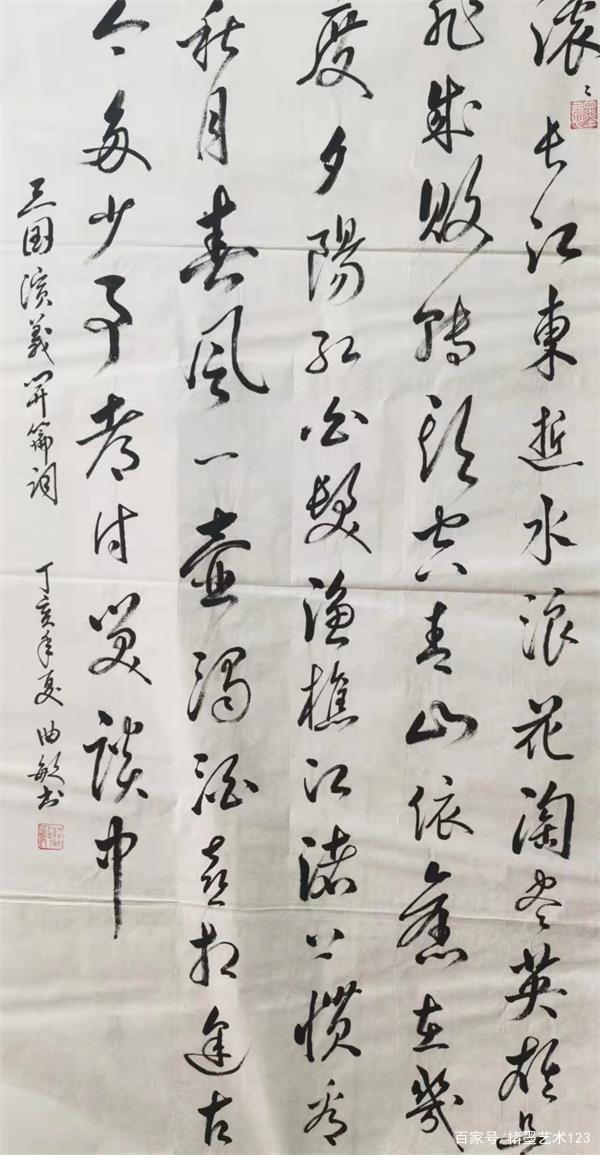 滚〻长江東逝水浪花淘尽英雄是
非成敗转头空青山依舊在幾
度夕陽红白髮渔樵江渚上惯看
秋月春风一壶濁酒喜相逢古
今多少事都付笑談中
三国演義开篇词 丁亥年夏曲敏书
百家号/楮墨艺术123